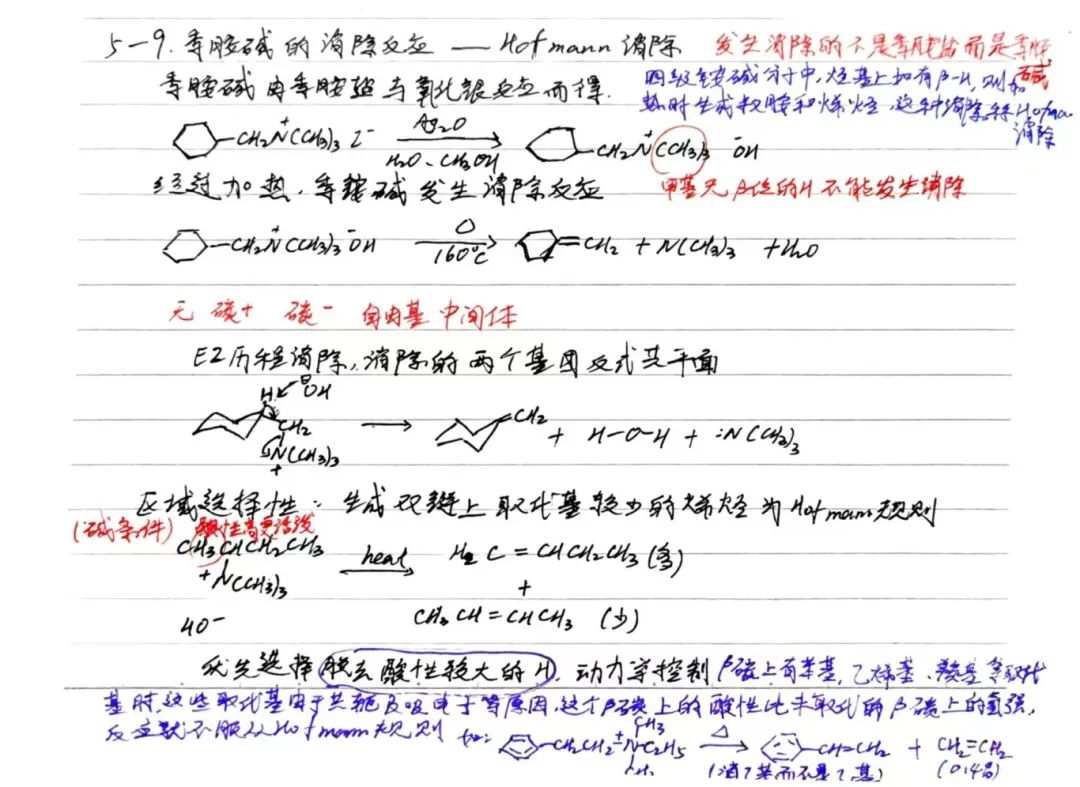 5-9. 季胺碱的消除反应 — Hofmann 消除 发生消除的不是季胺盐而是季胺碱
季胺碱由季胺盐与氧化银反应而得.
四级铵碱分子中,烃基上如有β-H,则加
热时生成叔胺和烯烃,这种消除称Hofmann
消除
CH₂N⁺(CH₃)₃ I⁻ Ag₂O H₂O、CH₃OH CH₂N⁺(CH₃)₃ ⁻OH
经过加热,季铵碱发生消除反应 甲基无β位的H不能发生消除
CH₂N⁺(CH₃)₃ ⁻OH 160℃ =CH₂ + N(CH₃)₃ + H₂O
无 碳+ 碳- 自由基 中间体
E2历程消除,消除的两个基团反式共平面
H ⁻OH
CH₂ → CH₂ + H-O-H + :N(CH₃)₃
N(CH₃)₃
+
区域选择性: 生成双键上取代基较少的烯烃为Hofmann规则
(碱条件) 酸性高更活泼
CH₃CHCH₂CH₃ heat H₂C=CHCH₂CH₃ (多)
+N(CH₃)₃ +
HO⁻ CH₃CH=CHCH₃ (少)
优先选择脱去酸性较大的H,动力学控制 β碳上有苯基、乙烯基、羰基等取代
基时,这些取代基由于共轭及吸电子等原因,这个β碳上的酸性比未取代的β碳上的氢强,
反应就不服从Hofmann规则
CH₃
如: CH₂CH₂-N⁺C₂H₅ △ CH=CH₂ + CH₂=CH₂
CH₃ (消乙苯而不是乙基) (0.4%)